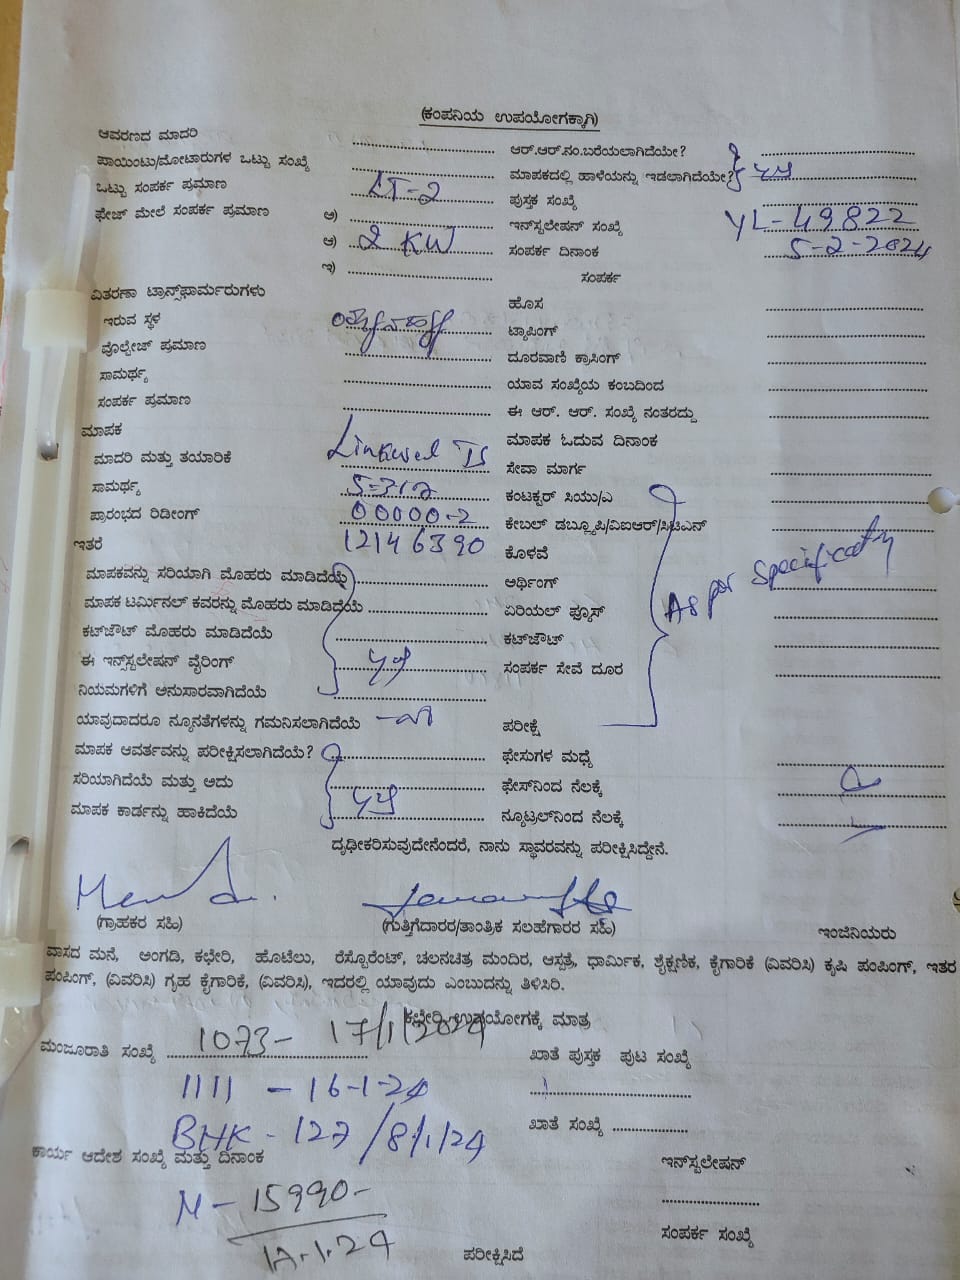 (ಕಂಪನಿಯ ಉಪಯೋಗಕ್ಕಾಗಿ)
ಆವರಣದ ಮಾದರಿ ಆರ್.ಆರ್.ನಂ.ಬರೆಯಲಾಗಿದೆಯೇ?
ಪಾಯಿಂಟು/ಮೋಟಾರುಗಳ ಒಟ್ಟು ಸಂಖ್ಯೆ ಮಾಪಕದಲ್ಲಿ ಹಾಳೆಯನ್ನು ಇಡಲಾಗಿದೆಯೇ?
ಒಟ್ಟು ಸಂಪರ್ಕ ಪ್ರಮಾಣ LT-2 ಪುಸ್ತಕ ಸಂಖ್ಯೆ
ಫೇಜ್ ಮೇಲೆ ಸಂಪರ್ಕ ಪ್ರಮಾಣ ಅ) ಇನ್‌ಸ್ಟಲೇಷನ್ ಸಂಖ್ಯೆ YL-49822
ಆ) 2 KW ಸಂಪರ್ಕ ದಿನಾಂಕ 5-2-2024
ಇ) ಸಂಪರ್ಕ
ವಿತರಣಾ ಟ್ರಾನ್ಸ್‌ಫಾರ್ಮರುಗಳು
ಇರುವ ಸ್ಥಳ ಹೊಸ
ವೊಲ್ಟೇಜ್ ಪ್ರಮಾಣ ಟ್ಯಾಪಿಂಗ್
ಸಾಮರ್ಥ್ಯ ದೂರವಾಣಿ ಕ್ರಾಸಿಂಗ್
ಸಂಪರ್ಕ ಪ್ರಮಾಣ ಯಾವ ಸಂಖ್ಯೆಯ ಕಂಬದಿಂದ
ಈ ಆರ್. ಆರ್. ಸಂಖ್ಯೆ ನಂತರದ್ದು
ಮಾಪಕ ಮಾಪಕ ಓದುವ ದಿನಾಂಕ
ಮಾದರಿ ಮತ್ತು ತಯಾರಿಕೆ ಸೇವಾ ಮಾರ್ಗ
ಸಾಮರ್ಥ್ಯ ಕಂಟಕ್ಟರ್ ಸಿಯು/ಎ
ಪ್ರಾರಂಭದ ರಿಡೀಂಗ್ 00000-2 ಕೇಬಲ್ ಡಬ್ಲ್ಯೂಪಿ/ವಿಐಆರ್/ಸಿಟಿಎನ್
ಇತರೆ 12146390 ಕೊಳವೆ
ಮಾಪಕವನ್ನು ಸರಿಯಾಗಿ ಮೊಹರು ಮಾಡಿದೆಯೆ ಅರ್ಥಿಂಗ್
ಮಾಪಕ ಟರ್ಮಿನಲ್ ಕವರನ್ನು ಮೊಹರು ಮಾಡಿದೆಯೆ ಏರಿಯಲ್ ಫ್ಯೂಸ್ As per
ಕಟ್‌ಔಟ್ ಮೊಹರು ಮಾಡಿದೆಯೆ ಕಟ್‌ಔಟ್
ಈ ಇನ್ಸ್‌ಸ್ಟಲೇಷನ್ ವೈರಿಂಗ್ ಸಂಪರ್ಕ ಸೇವೆ ದೂರ
ನಿಯಮಗಳಿಗೆ ಅನುಸಾರವಾಗಿದೆಯೆ
ಯಾವುದಾದರೂ ನ್ಯೂನತೆಗಳನ್ನು ಗಮನಿಸಲಾಗಿದೆಯೆ ಪರೀಕ್ಷೆ
ಮಾಪಕ ಆವರ್ತವನ್ನು ಪರೀಕ್ಷಿಸಲಾಗಿದೆಯೆ? ಫೇಸುಗಳ ಮಧ್ಯೆ
ಸರಿಯಾಗಿದೆಯೆ ಮತ್ತು ಅದು ಫೇಸ್‌ನಿಂದ ನೆಲಕ್ಕೆ
ಮಾಪಕ ಕಾರ್ಡನ್ನು ಹಾಕಿದೆಯೆ ನ್ಯೂಟ್ರಲ್‌ನಿಂದ ನೆಲಕ್ಕೆ
ದೃಢೀಕರಿಸುವುದೇನೆಂದರೆ, ನಾನು ಸ್ಥಾವರವನ್ನು ಪರೀಕ್ಷಿಸಿದ್ದೇನೆ.
(ಗ್ರಾಹಕರ ಸಹಿ) (ಗುತ್ತಿಗೆದಾರರ/ತಾಂತ್ರಿಕ ಸಲಹೆಗಾರರ ಸಹಿ) ಇಂಜಿನಿಯರು
ವಾಸದ ಮನೆ, ಅಂಗಡಿ, ಕಛೇರಿ, ಹೊಟೆಲು, ರೆಸ್ಟೊರೆಂಟ್, ಚಲನಚಿತ್ರ ಮಂದಿರ, ಆಸ್ಪತ್ರೆ, ಧಾರ್ಮಿಕ, ಶೈಕ್ಷಣಿಕ, ಕೈಗಾರಿಕೆ (ವಿವರಿಸಿ) ಕೃಷಿ ಪಂಪಿಂಗ್, ಇತರ
ಪಂಪಿಂಗ್, (ವಿವರಿಸಿ) ಗೃಹ ಕೈಗಾರಿಕೆ, (ವಿವರಿಸಿ), ಇದರಲ್ಲಿ ಯಾವುದು ಎಂಬುದನ್ನು ತಿಳಿಸಿರಿ.
ಕಛೇರಿ ಉಪಯೋಗಕ್ಕೆ ಮಾತ್ರ
ಮಂಜೂರಾತಿ ಸಂಖ್ಯೆ 1073- 17/1/2024 ಖಾತೆ ಪುಸ್ತಕ ಪುಟ ಸಂಖ್ಯೆ
1111 - 16-1-24
BHK - 127/8/1/24 ಖಾತೆ ಸಂಖ್ಯೆ
ಕಾರ್ಯ ಆದೇಶ ಸಂಖ್ಯೆ ಮತ್ತು ದಿನಾಂಕ ಇನ್‌ಸ್ಟಲೇಷನ್
M - 15990-
17.1.24 ಸಂಪರ್ಕ ಸಂಖ್ಯೆ
ಪರೀಕ್ಷಿಸಿದೆ